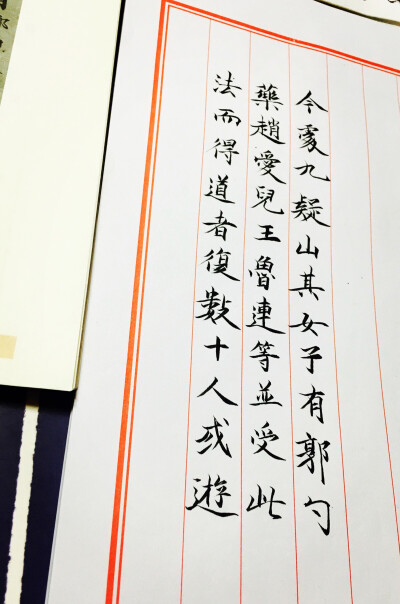 今處九疑山其女子有郭勺
藥趙愛兒王魯連等並受此
法而得道者復數十人或遊